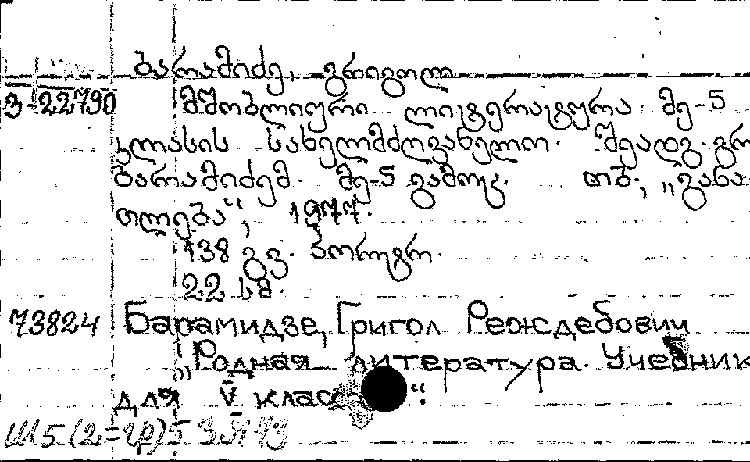 ბარამიძე, გრიგოლ
3-22790 მშობლიური ლიტერატურა მე-5
კლასის სახელმძღვანელო. შეადგ. გრ.
ბარამიძემ. მე-5 გამოც. თბ., „განა-
თლება", 1977.
138 გვ. პორტრ.
22 სმ.
73824 Барамидзе, Григол Реждебович
„Родная литература. Учебник
для V класса".
Ш5(2=Гр)5